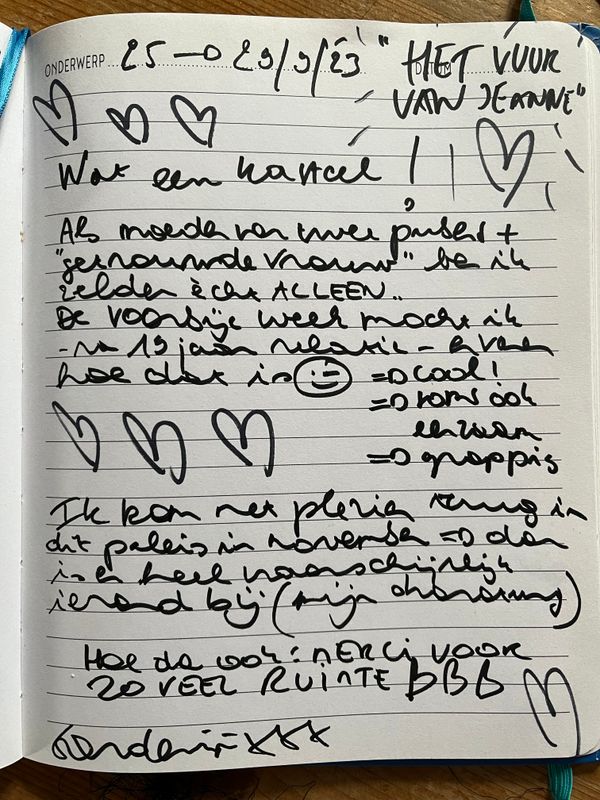 ONDERWERP 25 → 29/9/23 "HET VUUR
VAN JEANNE"
Wat een kasteel !
Als moeder van twee pubers +
"getrouwde vrouw" ben ik
zelden écht ALLEEN..
De voorbije week mocht ik
- na 19 jaar relatie - ervaren
hoe dat is => cool!
=> soms ook
eenzaam
=> grappig
Ik kom met plezier terug in
dit paleis in november => dan
is er heel waarschijnlijk
iemand bij (mijn
Hoe da ook: MERCI VOOR
ZO VEEL RUIMTE
xxx